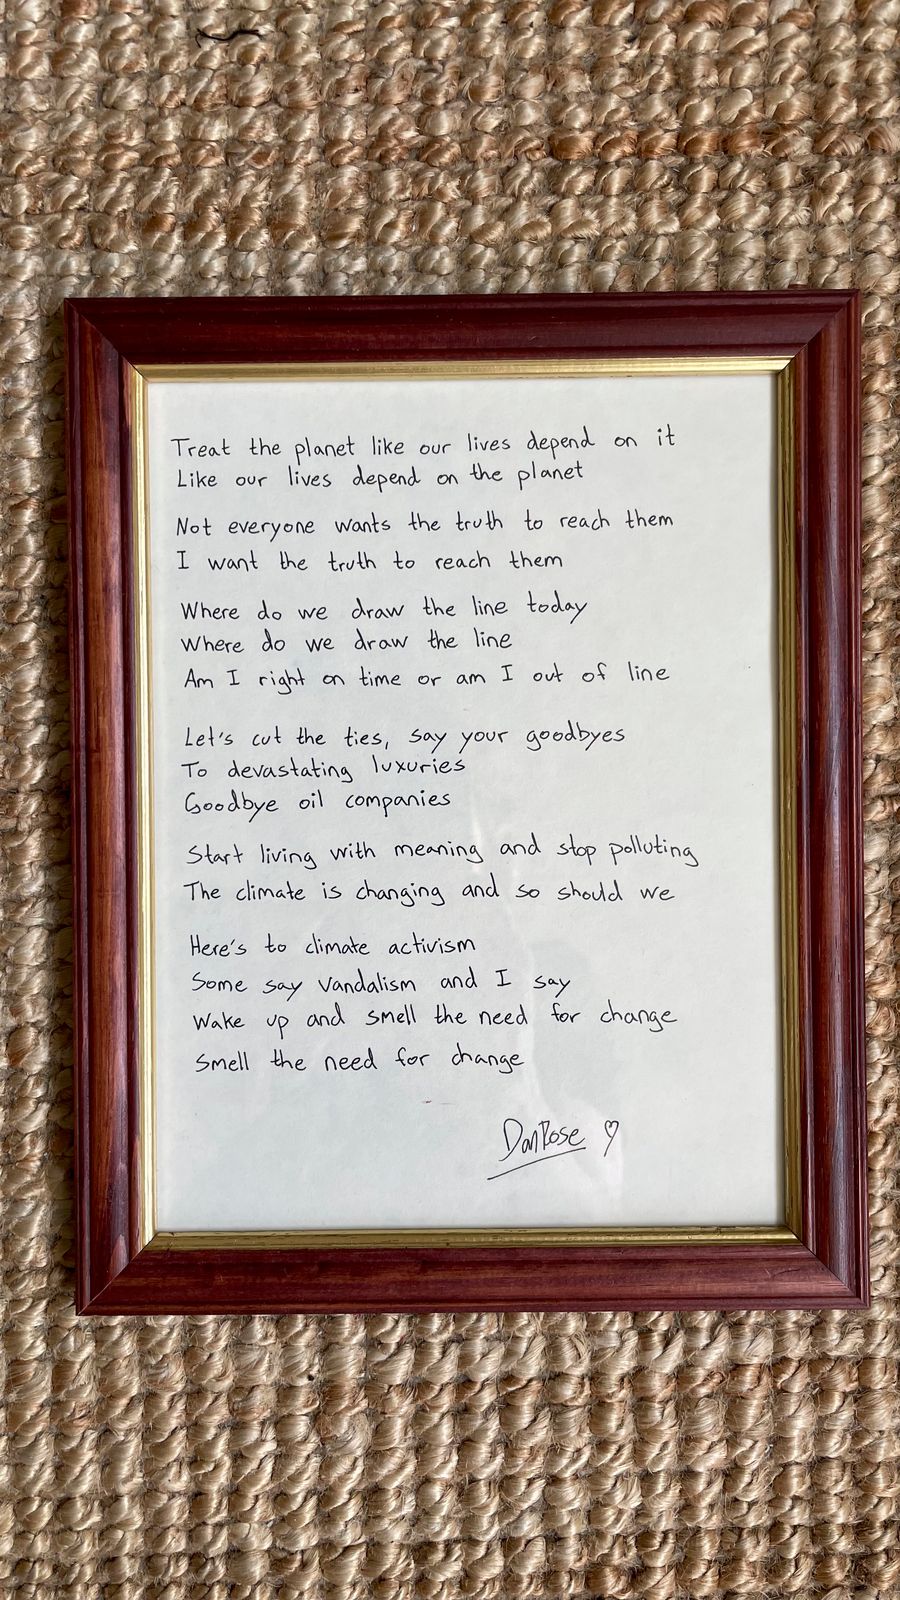 Treat the planet like our lives depend on it
Like our lives depend on the planet
Not everyone wants the truth to reach them
I want the truth to reach them
Where do we draw the line today
Where do we draw the line
Am I right on time or am I out of line
Let's cut the ties, say your goodbyes
To devastating luxuries
Goodbye oil companies
Start living with meaning and stop polluting
The climate is changing and so should we
Here's to climate activism
Some say vandalism and I say
Wake up and smell the need for change
Smell the need for change
Dan Rose ♡